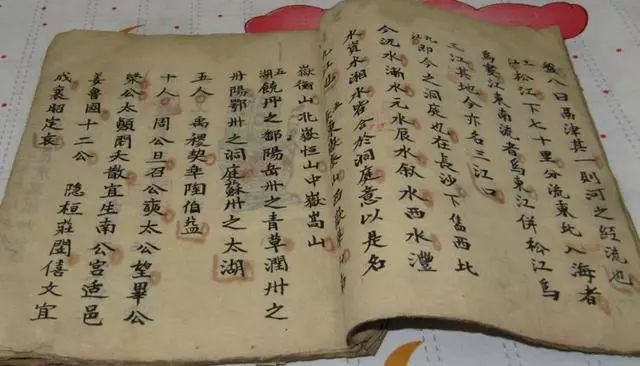 盤八曰鬲津其一則河之經流也
三江松江下七十里分流東北入海者
爲婁江東南流者爲東江併松江爲
三江其地今亦名三江口
九江即今之洞庭也在長沙下雋西北
今沅水漸水元水辰水叙水西水灃
水資水湘水皆合於洞庭意以是名
嶽衡山北嶽恒山中嶽嵩山
五湖饒卅之鄱陽岳卅之青草潤卅之
丹陽鄂卅之洞庭蘇卅之太湖
五人 禹稷契皋陶伯益
十人 周公旦召公奭太公望畢公
榮公太顛閎夭散宜生南公宮适邑
姜魯國十二公 隱桓莊閔僖文宣
成襄昭定哀